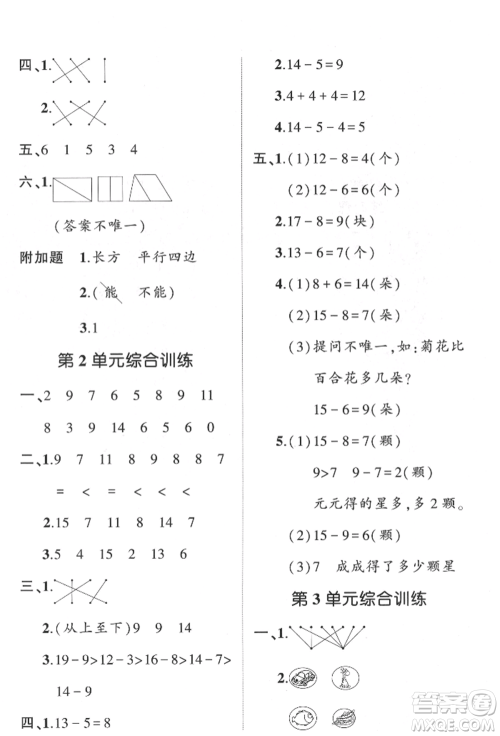 四、1.
2.
五、6 1 5 3 4
六、1.
(答案不唯一)
附加题 1.长方 平行四边
2.(能 不能)
3.1
第2单元综合训练
一、2 9 7 6 5 8 9 11
8 3 9 14 6 5 8 8
二、1.9 7 8 8 8 8 9 7
= < = < < <
2.15 7 11 7 5 8
3.5 4 15 12 6 15
三、1.
2.(从上至下)9 9 7 9
3.19-9>11-2>16-8>14-7>
14-9
四、1.13-5=8
2.14-5=9
3.4+4+4=12
4.14-5-4=5
五、1.(1)12-8=4(个)
(2)12-6=6(个)
2.17-8=9(块)
3.13-6=7(个)
4.(1)8+6=14(朵)
(2)15-8=7(朵)
(3)提问不唯一,如:菊花比
百合花多几朵?
15-6=9(朵)
5.(1)15-8=7(颗)
9>7 9-7=2(颗)
元元得的星多,多2颗星。
(2)15-9=6(颗)
(3)7 成成得了多少颗星
第3单元综合训练
一、1.
2.
答案圈
MXQE.COM